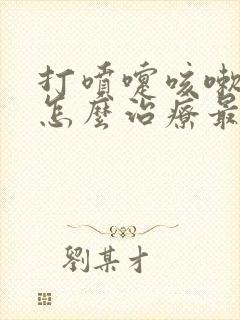 打噴嚏咳嗽
怎麼治療最
劉某才